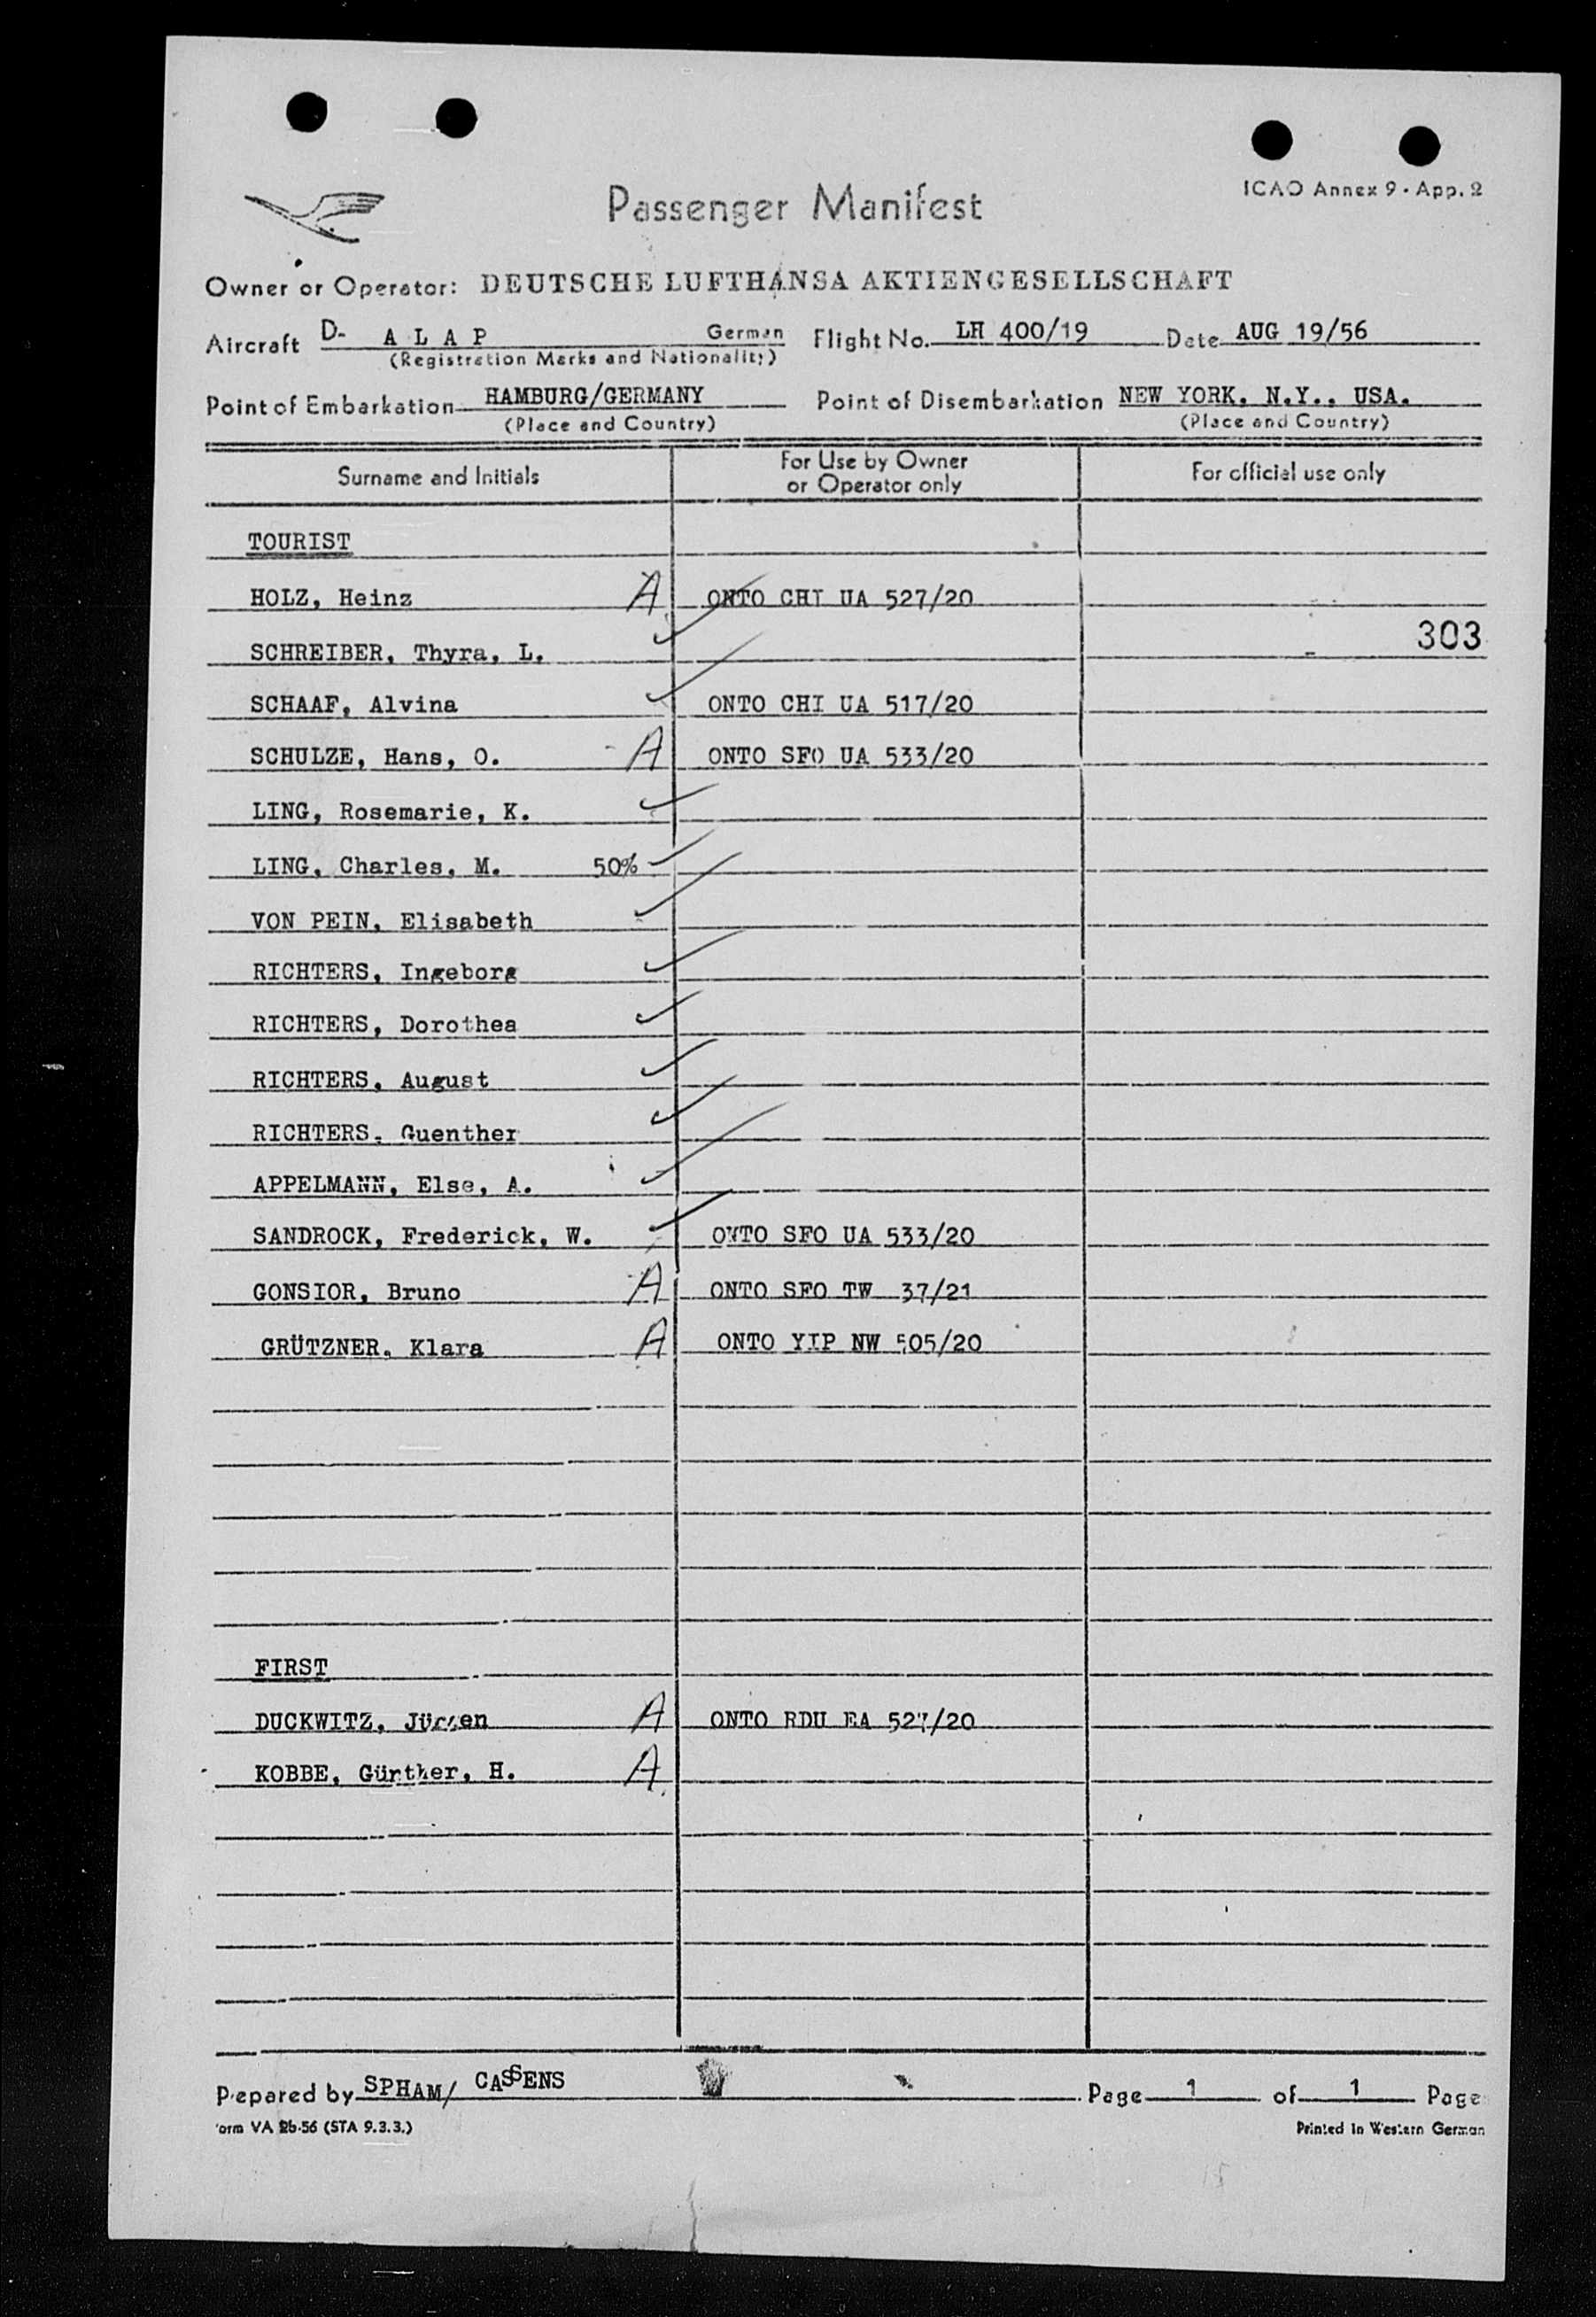 ICAO Annex 9 - App. 2
Passenger Manifest
Owner or Operator: DEUTSCHE LUFTHANSA AKTIENGESELLSCHAFT
Aircraft D- A L A P German Flight No. LH 400/19 Date AUG 19/56
(Registration Marks and Nationality)
Point of Embarkation HAMBURG/GERMANY Point of Disembarkation NEW YORK, N.Y., USA.
(Place and Country) (Place and Country)
Surname and Initials For Use by Owner or Operator only For official use only
TOURIST
HOLZ, Heinz A ONTO CHI UA 527/20
303
SCHREIBER, Thyra, L. ✓
SCHAAF, Alvina ✓ ONTO CHI UA 517/20
SCHULZE, Hans, O. A ONTO SFO UA 533/20
LING, Rosemarie, K. ✓
LING, Charles, M. 50% ✓
VON PEIN, Elisabeth ✓
RICHTERS, Ingeborg ✓
RICHTERS, Dorothea ✓
RICHTERS, August ✓
RICHTERS, Guenther ✓
APPELMANN, Else, A. ✓
SANDROCK, Frederick, W. ✓ ONTO SFO UA 533/20
GONSIOR, Bruno A ONTO SFO TW 37/21
GRÜTZNER, Klara A ONTO YIP NW 505/20
FIRST
DUCKWITZ, Jürgen A ONTO RDU EA 527/20
KOBBE, Günther, H. A
Prepared by SPHAM/ CASSENS Page 1 of 1 Page
Form VA 2b-56 (STA 9.3.3.) Printed in Western German